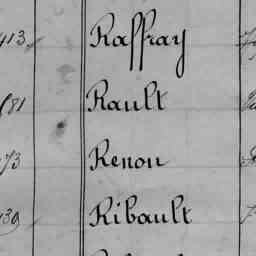 413 Raffray
Rault
73 Renou
Ribault